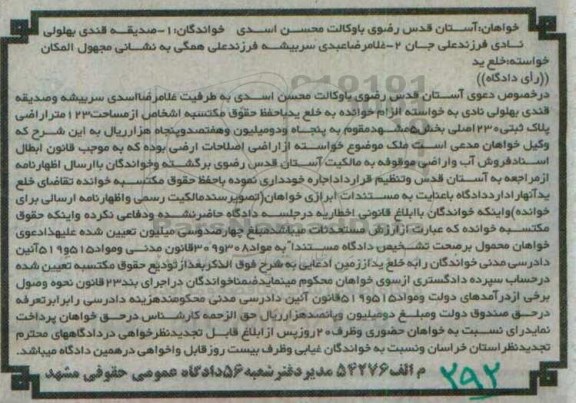 خواهان:آستان قدس رضوی باوکالت محسن اسدی خواندگان:1-صدیقه قندی بهلولی
نادی فرزندعلی جان 2-غلامرضاعبدی سربیشه فرزندعلی همگی به نشانی مجهول المکان
خواسته:خلع ید
((رأی دادگاه))
درخصوص دعوی آستان قدس رضوی باوکالت محسن اسدی به طرفیت غلامرضااسدی سربیشه وصدیقه
قندی بهلولی نادی به خواسته الزام خوانده به خلع یدباحفظ حقوق مکتسبه اشخاص ازمساحت123متراراضی
پلاک ثبتی230اصلی بخش5مشهدمقوم به پنجاه ودومیلیون وهفتصدوپنجاه هزارریال به این شرح که
وکیل خواهان مدعی است ملک موضوع خواسته ازاراضی اصلاحات ارضی بوده که به موجب قانون ابطال
اسنادفروش آب واراضی موقوفه به مالکیت آستان قدس رضوی برگشته وخواندگان باارسال اظهارنامه
ازمراجعه به آستان قدس وتنظیم قرارداداجاره خودداری نموده باحفظ حقوق مکتسبه خوانده تقاضای خلع
یدآنهارادارددادگاه باعنایت به مستندات ابرازی خواهان(تصویرسندمالکیت رسمی واظهارنامه ارسالی برای
خوانده)واینکه خواندگان باابلاغ قانونی اخطاریه درجلسه دادگاه حاضرنشده ودفاعی نکرده واینکه حقوق
مکتسبه خوانده که عبارت ازارزش مستعدثات میباشدمبلغ چهارصدوسی میلیون تعیین شده علیهذادعوی
خواهان محمول برصحت تشخیص دادگاه مستندا"به مواد308و309قانون مدنی ومواد515و519آئین
دادرسی مدنی خواندگان رابه خلع یداززمین ادعایی به شرح فوق الذکربعدازتودیع حقوق مکتسبه تعیین شده
درحساب سپرده دادگستری ازسوی خواهان محکوم مینمایدضمناخواندگان دراجرای بند23قانون نحوه وصول
برخی ازدرآمدهای دولت ومواد515و519قانون آئین دادرسی مدنی محکومندهزینه دادرسی رابرابرتعرفه
درحق صندوق دولت ومبلغ دومیلیون وپانصدهزارریال حق الزحمه کارشناس درحق خواهان پرداخت
نمایدرای نسبت به خواهان حضوری وظرف20روزپس ازابلاغ قابل تجدیدنظرخواهی دردادگاههای محترم
تجدیدنظراستان خراسان ونسبت به خواندگان غیابی وظرف بیست روزقابل واخواهی درهمین دادگاه میباشد.
م الف54276 مدیردفترشعبه56دادگاه عمومی حقوقی مشهد
292